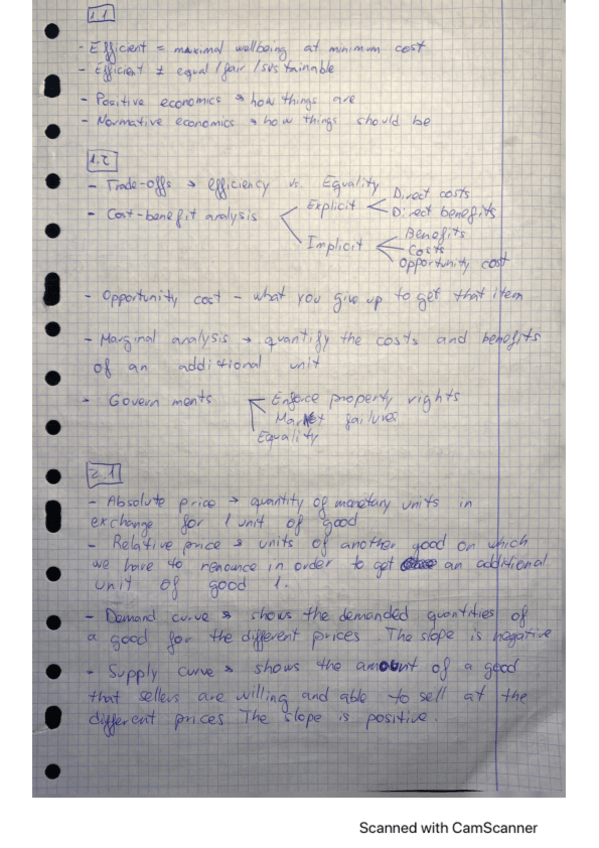 1.1
- Efficient = maximal wellbeing at minimum cost
- Efficient ≠ equal / fair / sustainable
- Positive economics → how things are
- Normative economics → how things should be
1.2
- Trade-offs → efficiency vs. Equality
- Cost-benefit analysis
Explicit
Direct costs
Direct benefits
Implicit
Benefits
Costs
Opportunity cost
- Opportunity cost - what you give up to get that item
- Marginal analysis → quantify the costs and benefits
of an addictional unit
- Governments
Enforce property rights
Market failures
Equality
2.1
- Absolute price → quantity of monetary units in
exchange for 1 unit of good
- Relative price → units of another good on which
we have to renounce in order to get an additional
unit of good 1.
- Demand curve → shows the demanded quantities of
a good for the different prices. The slope is negative
- Supply curve → shows the amount of a good
that sellers are willing and able to sell at the
different prices The slope is positive.
Scanned with CamScanner